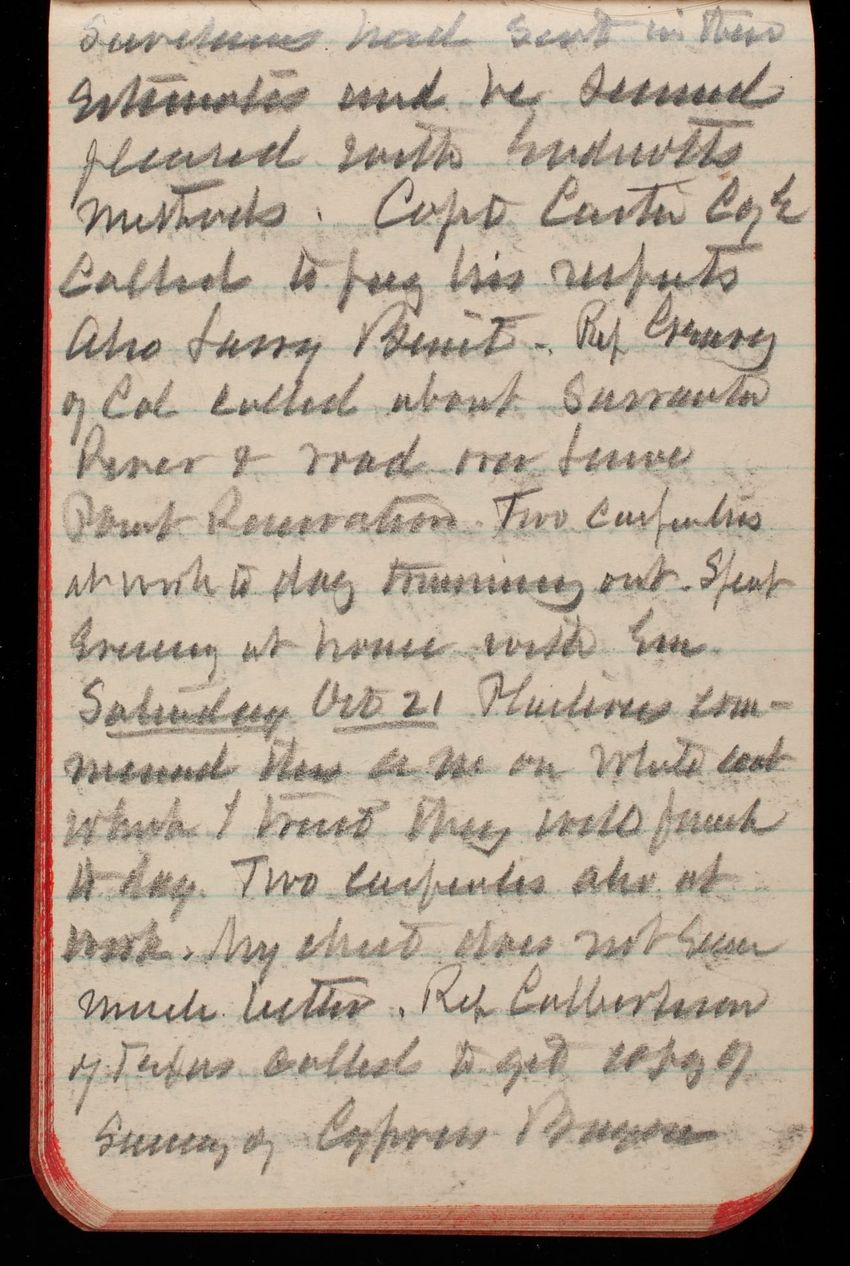 had sent in their
Estimates and he seemed
pleased with Endicotts
methods. Capt Carter Cog E
Called to pay his respects
Also Larry Benét. Rep Geary
of Cal called about Sacramento
River & road over Lime
Point Reservation. Two carpenters
at work to day trimming out. Spent
Evening at house with Em
Saturday Oct 21 Plasterers com-
menced this a m on White coat
which I trust they will finish
to day. Two carpenters also at
work. My chest does not seem
much better. Rep Culberson
of Texas called to get copy of
Survey of Cypress Bayou